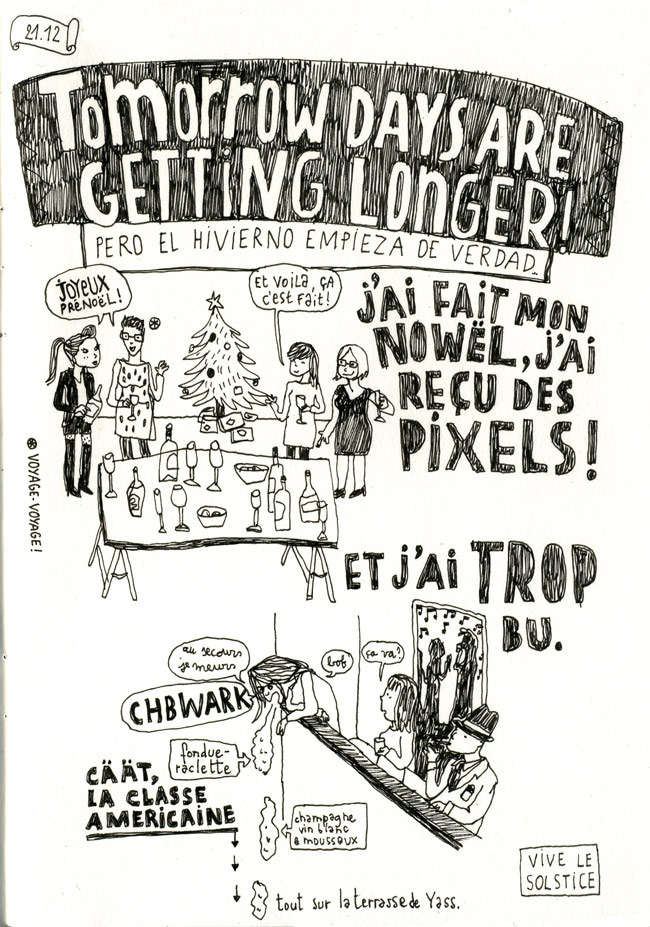 21.12
Tomorrow DAYS ARE
GETTiNG LOnGER!
PERO EL HIVIERNO EMPIEZA DE VERDAD..
JOYEUX
PRENOËL!
Et voilà, ça
c'est fait!
J'Ai FAiT MON
NOWËL, J'Ai
REÇU DES
PiXELS!
⊛ VOYAGE-VOYAGE!
ET J'Ai TROP
BU.
au secours
je meurs
bof
ça va?
CHBWARK
fondue-
raclette
CÄÄT,
LA CLASSE
AMERICAINE
champagne
vin blanc
& mousseux
tout sur la terrasse de Yass.
VIVE LE
SOLSTICE